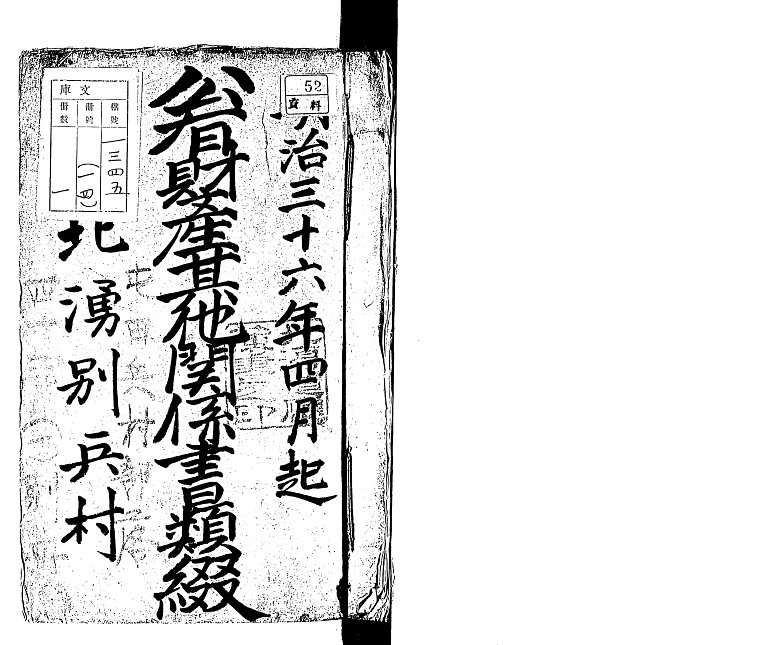 52
資料
治三十六年四月起
公有財産其他関係書類綴
庫文
一三四五
(一四)
冊數
一
北湧別兵村